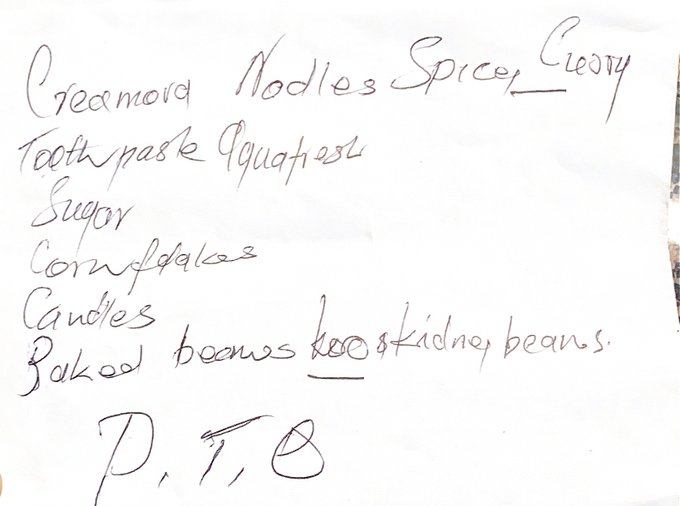 Creamora Nodles Spicey Curry
Toothpaste Aquafresh
Sugar
Cornflakes
Candles
Baked beans koo & kidney beans.
P.T.O